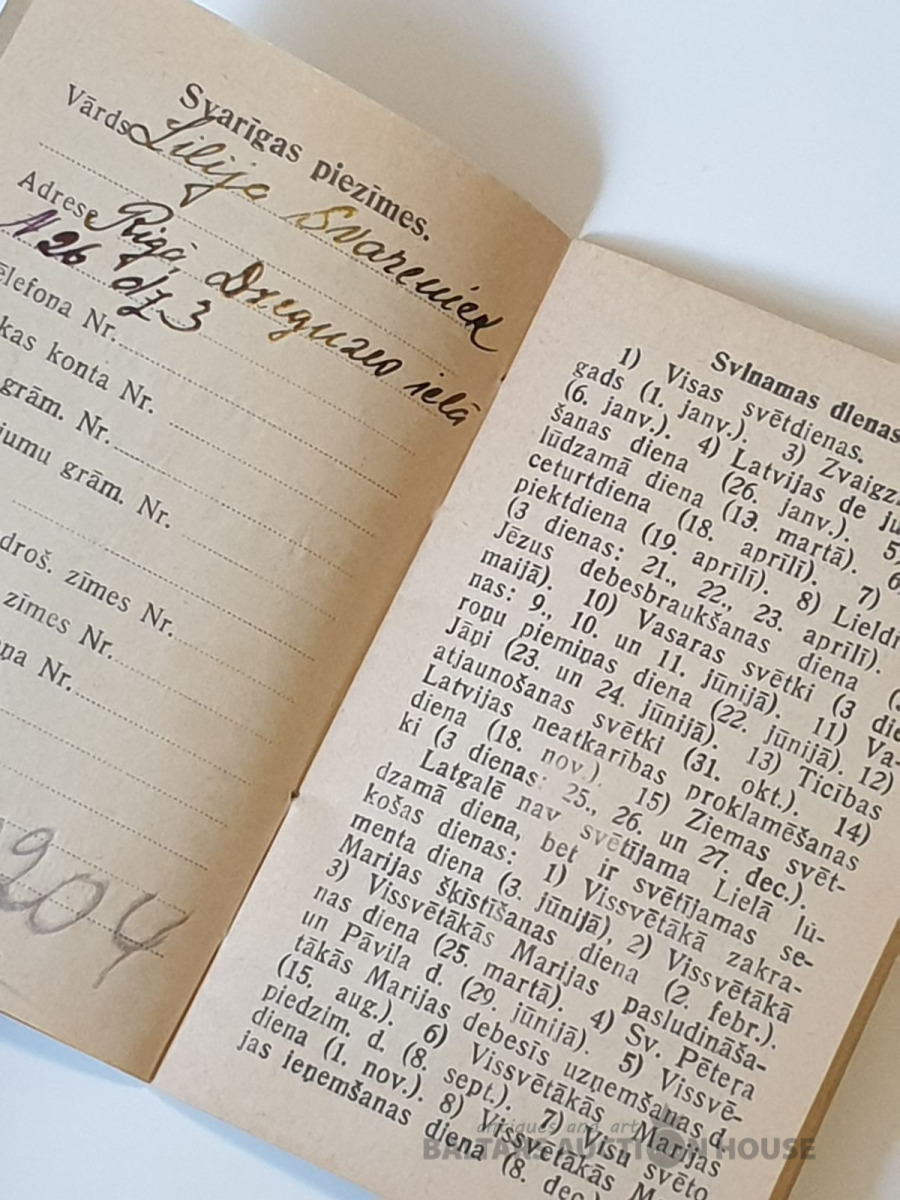 Svarīgas piezīmes.
Vārds Lilija
Adrese Rīgā, ielā
N 26 dz 3
ēlefona Nr.
kas konta Nr.
grām. Nr.
jumu grām. Nr.
droš. zīmes Nr.
zīmes Nr.
ņa Nr.
204
Svinamas dienas
1) Visas svētdienas.
gads (1. janv.). 3) Zvaigz
(6. janv.). 4) Latvijas de ju
šanas diena (26. janv.). 5)
lūdzamā diena (13. martā). 6
ceturtdiena (18. aprīlī). 7)
piektdiena (19. aprīlī). 8) Lieldi
(3 dienas: 21., 22., 23. aprīlī).
Jēzus debesbraukšanas diena (
maijā). 10) Vasaras svētki (3 die
nas: 9., 10. un 11. jūnijā). 11) Va-
roņu piemiņas diena (22. jūnijā). 12)
Jāņi (23. un 24. jūnijā). 13) Ticības
atjaunošanas svētki (31. okt.). 14)
Latvijas neatkarības proklamēšanas
diena (18. nov.) 15) Ziemas svēt-
ki (3 dienas: 25., 26. un 27. dec.).
Latgalē nav svētījama Lielā lū-
dzamā diena, bet ir svētījamas se-
košas dienas: 1) Vissvētākā zakra-
menta diena (3. jūnijā), 2) Vissvētākā
Marijas šķīstīšanas diena (2. febr.).
3) Vissvētākās Marijas pasludināša-
nas diena (25. martā). 4) Sv. Pētera
un Pāvila d. (29. jūnijā). 5) Vissvē-
tākās Marijas debesīs uzņemšana d.
(15. aug.). 6) Vissvētākās Marijas
piedzim. d. (8. sept.). 7) Visu svēto
diena (1. nov.). 8) Vissvētākās Ma
jas ieņemšanas diena (8. dec
antiques and art
BALTARS AUCTION HOUSE